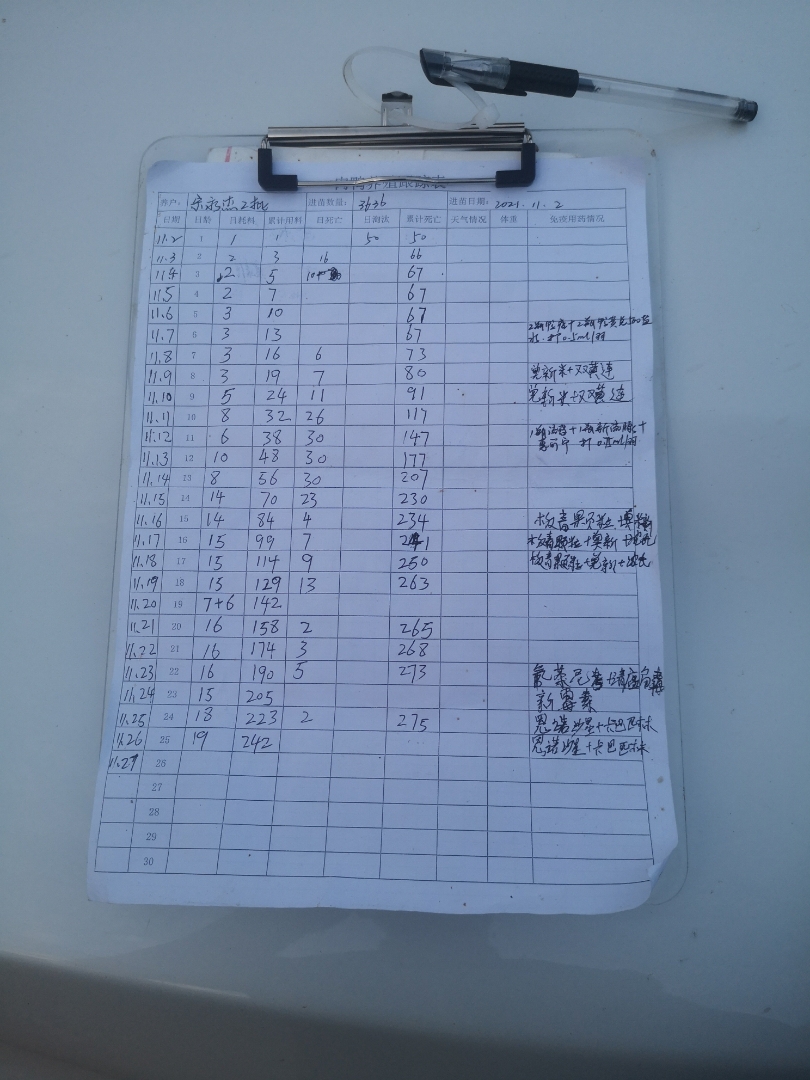 肉鸭养殖跟踪表
客户: 宗永杰2批 进苗数量: 3636 进苗日期: 2021.11.2
日期 日龄 日耗料 累计用料 日死亡 日淘汰 累计死亡 天气情况 体重 免疫用药情况
11.2 1 1 1 50 50
11.3 2 2 3 16 66
11.4 3 2 5 67
11.5 4 2 7 67
11.6 5 3 10 67
11.7 6 3 13 67
11.8 7 3 16 6 73
11.9 8 3 19 7 80 新米+双黄连
11.10 9 5 24 11 91 新米+双黄连
11.11 10 8 32 26 117
11.12 11 6 38 30 147
11.13 12 10 48 30 177
11.14 13 8 56 30 207
11.15 14 14 70 23 230
11.16 15 14 84 4 234 板青果颗粒
11.17 16 15 99 7 241 板青颗粒
11.18 17 15 114 9 250 板青颗粒
11.19 18 15 129 13 263
11.20 19 7+6 142
11.21 20 16 158 2 265
11.22 21 16 174 3 268
11.23 22 16 190 5 273 氟苯尼考
11.24 23 15 205 新霉素
11.25 24 18 223 2 275 恩诺沙星+卡巴匹林
11.26 25 19 242 恩诺沙星+卡巴匹林
11.27 26
27
28
29
30